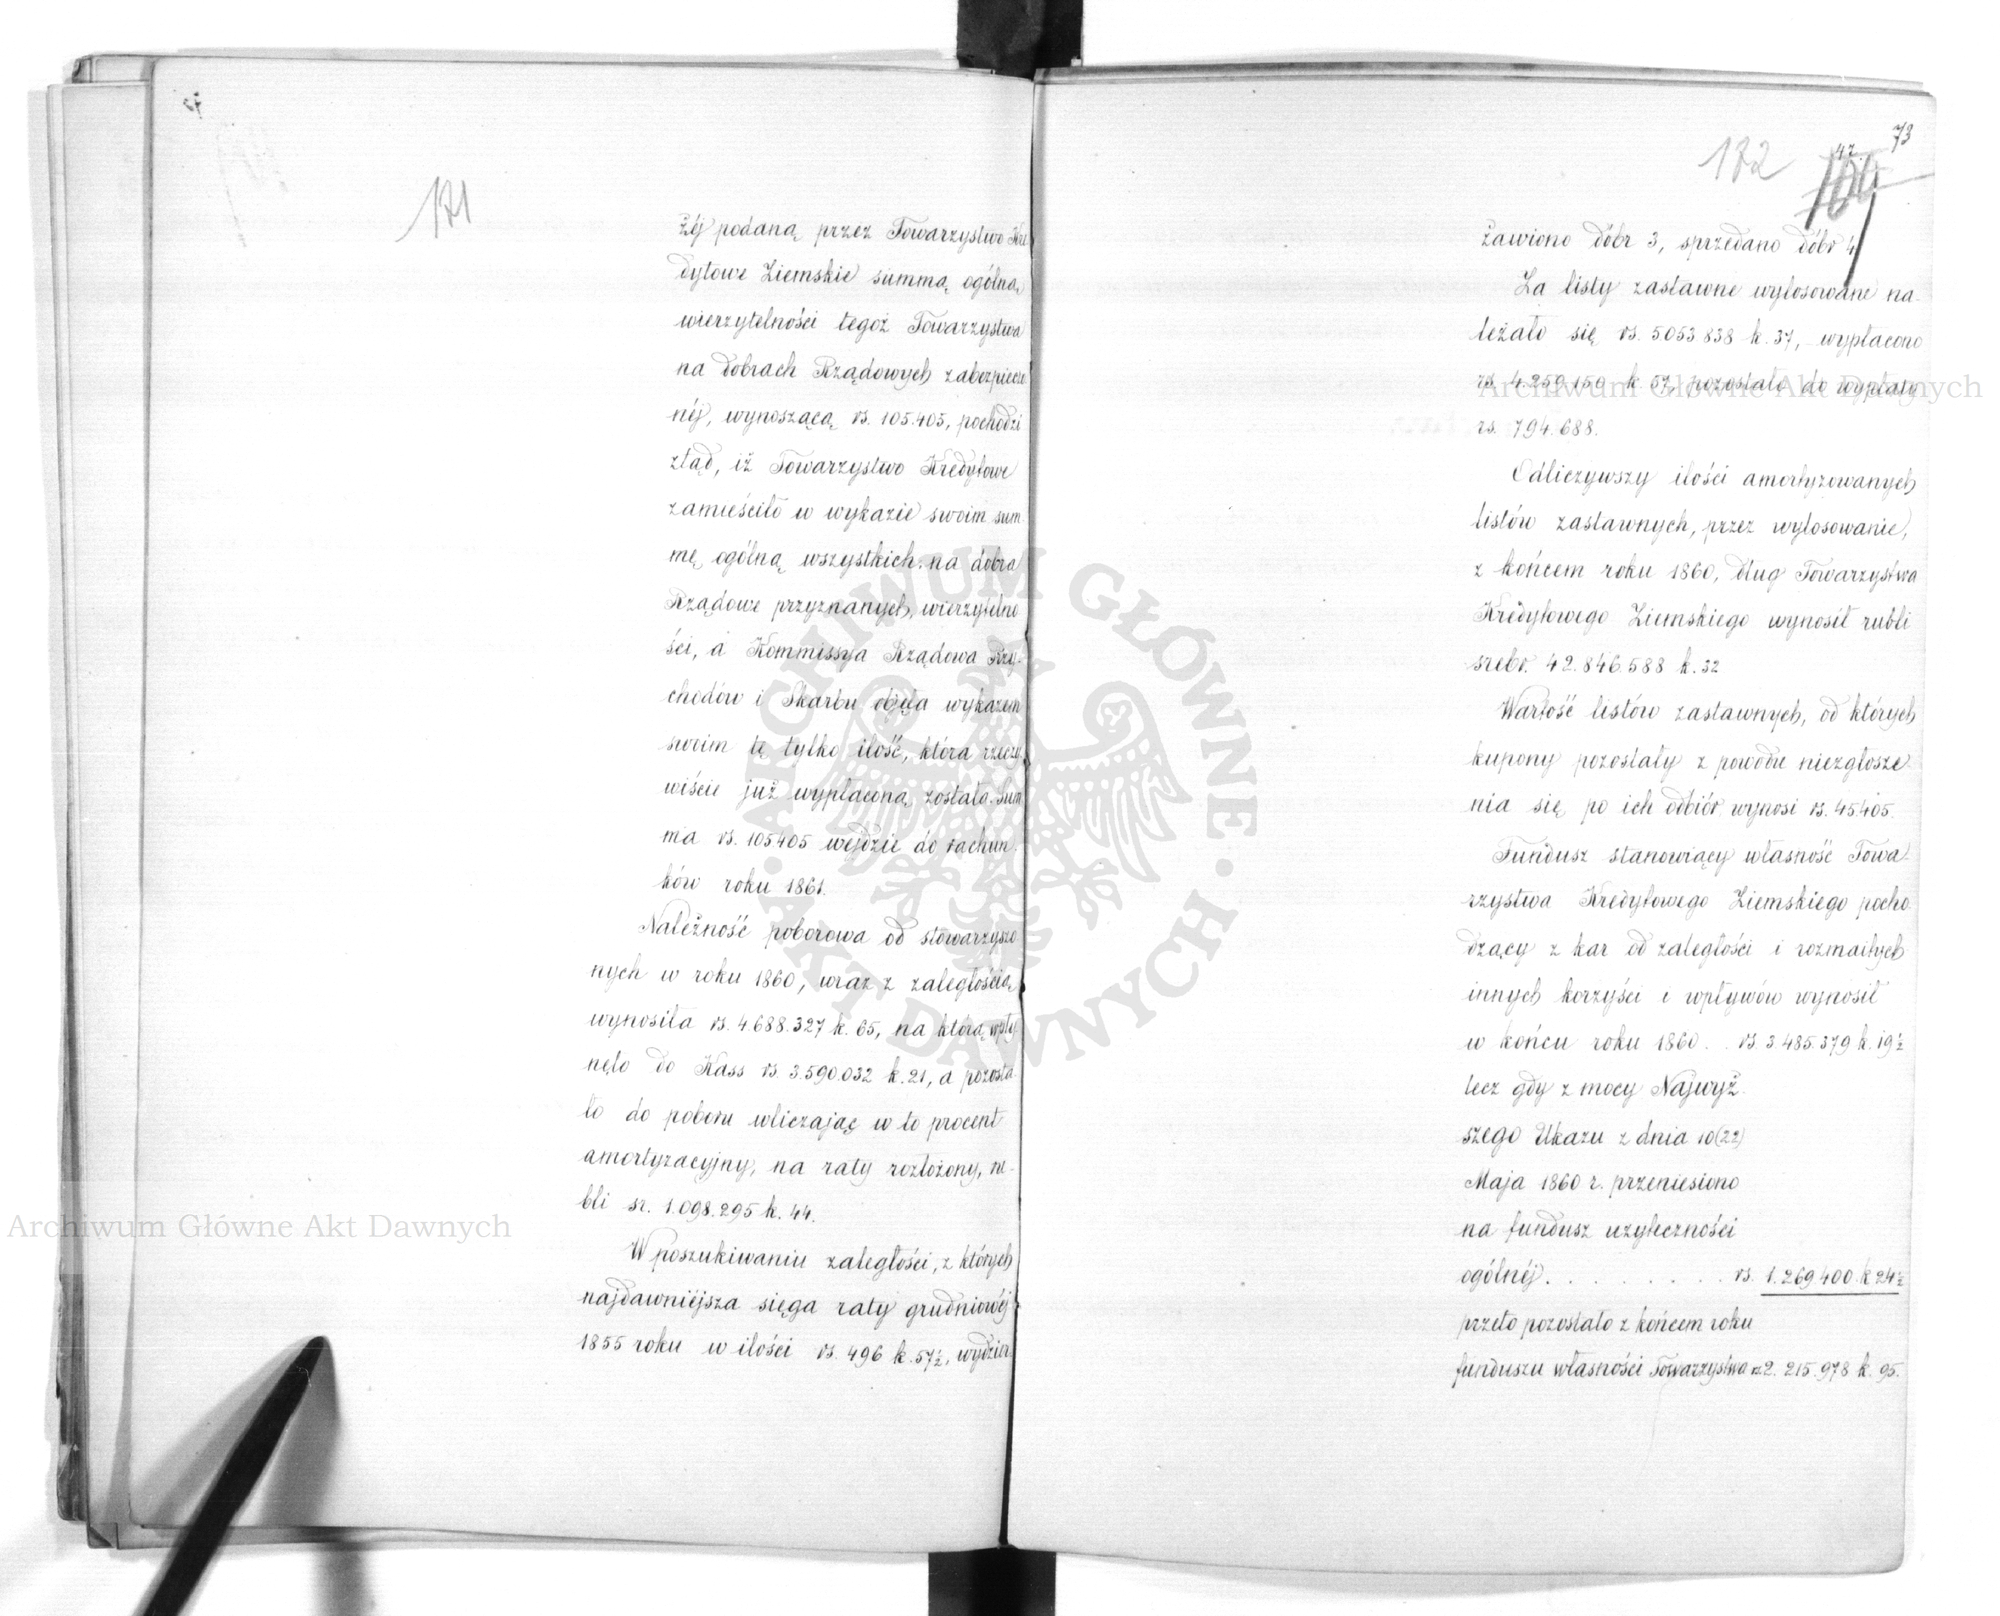 171
żéj podaną przez Towarzystwo Kre
dytowe Ziemskie summą ogólną
wierzytelności tegoż Towarzystwa
na dobrach Rządowych zabezpieczo
néj, wynoszącą rs. 105.405, pochodzi
ztąd, iż Towarzystwo Kredytowe
zamieściło w wykazie swoim sum
mę ogólną wszystkich na dobra
Rządowe przyznanych, wierzytelno
ści, a Kommissya Rządowa Przy-
chodów i Skarbu objęła wykazem
swoim tę tylko ilość, która rzeczy
wiście już wypłaconą została. Sum
ma rs. 105405 wejdzie do rachun
ków roku 1861.
Należność poborowa od stowarzyszo
nych w roku 1860, wraz z zaległością,
wynosiła rs. 4.688.327 k. 65, na którą wpły
nęło do Kass rs. 3.590.032 k. 21, a pozosta
ło do poboru wliczając w to procent
amortyzacyjny, na raty rozłożony, ru-
bli sr. 1.098.295 k. 44.
W poszukiwaniu zaległości, z których
najdawniejsza sięga raty grudniowéj
1855 roku w ilości rs. 496 k. 57½, wydzier
73
47.
172
169
żawiono dóbr 3, sprzedano dóbr 4.
Za listy zastawne wylosowane na-
leżało się rs. 5.053.838 k. 37, wypłacono
rs. 4.259.150 k. 37, pozostało do wypłaty
rs. 794.688.
Odliczywszy ilości amortyzowanych
listów zastawnych, przez wylosowanie,
z końcem roku 1860, dług Towarzystwa
Kredytowego Ziemskiego wynosił rubli
srebr. 42.846.588 k. 32
Wartość listów zastawnych, od których
kupony pozostały z powodu niezgłosze-
nia się po ich odbiór wynosi rs. 45.405.
Fundusz stanowiący własność Towa-
rzystwa Kredytowego Ziemskiego pocho
dzący z kar od zaległości i rozmaitych
innych korzyści i wpływów wynosił
w końcu roku 1860 . . rs. 3.485.379 k. 19½
lecz gdy z mocy Najwyż
szego Ukazu z dnia 10(22)
Maja 1860 r. przeniesiono
na fundusz użyteczności
ogólnéj . . . . . . . . rs. 1.269.400. k. 24½
przeto pozostało z końcem roku
funduszu własności Towarzystwa rs. 2.215.978 k. 95.
Archiwum Główne Akt Dawnych
Archiwum Główne Akt Dawnych
ARCHIWUM GŁÓWNE · AKT DAWNYCH ·